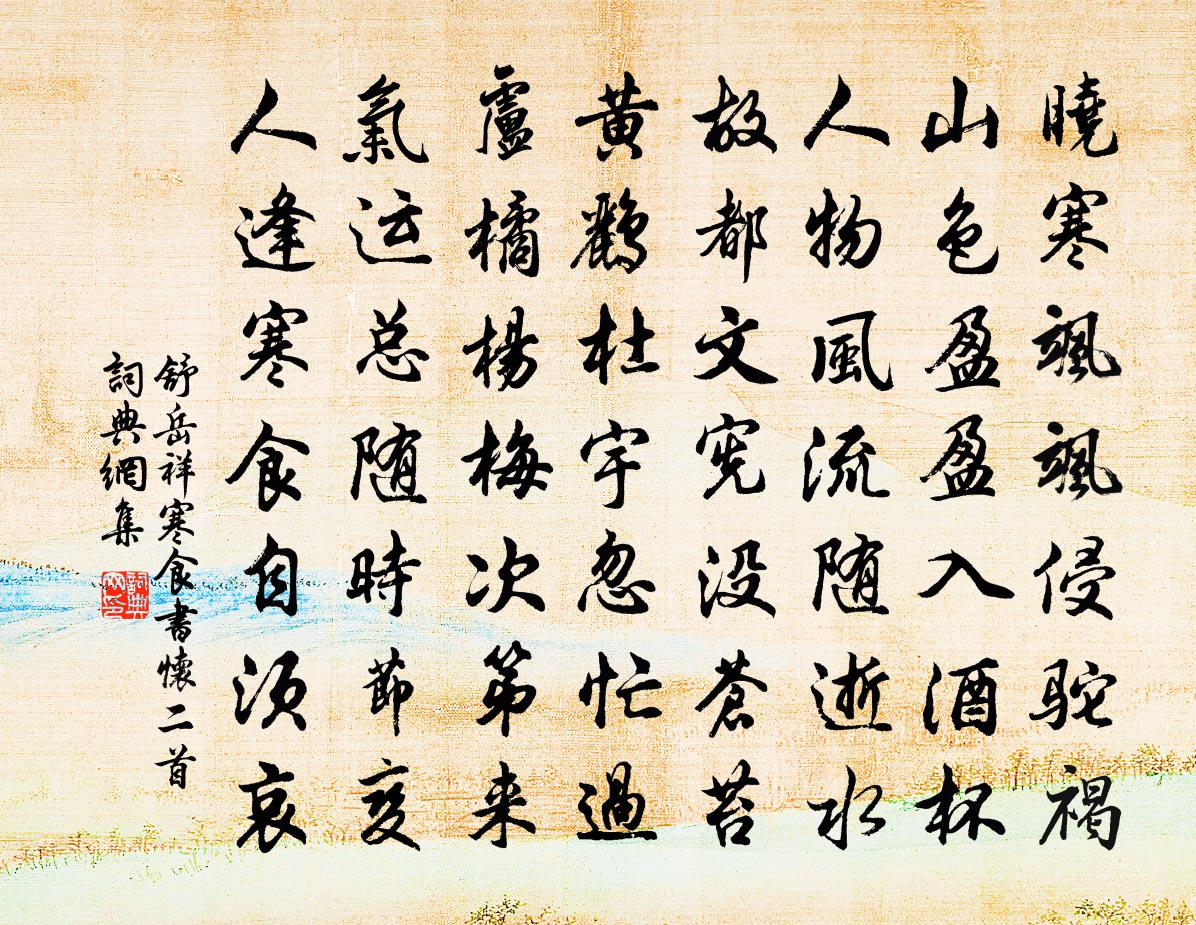 曉寒颯颯侵駝褐
山色盈盈入酒杯
人物風流随逝水
故都文宪没蒼苔
黄鸝杜宇忽忙過
盧橘楊梅次第来
氣运总随時節变
人逢寒食自須哀
舒岳祥寒食書懷二首
詞典網集